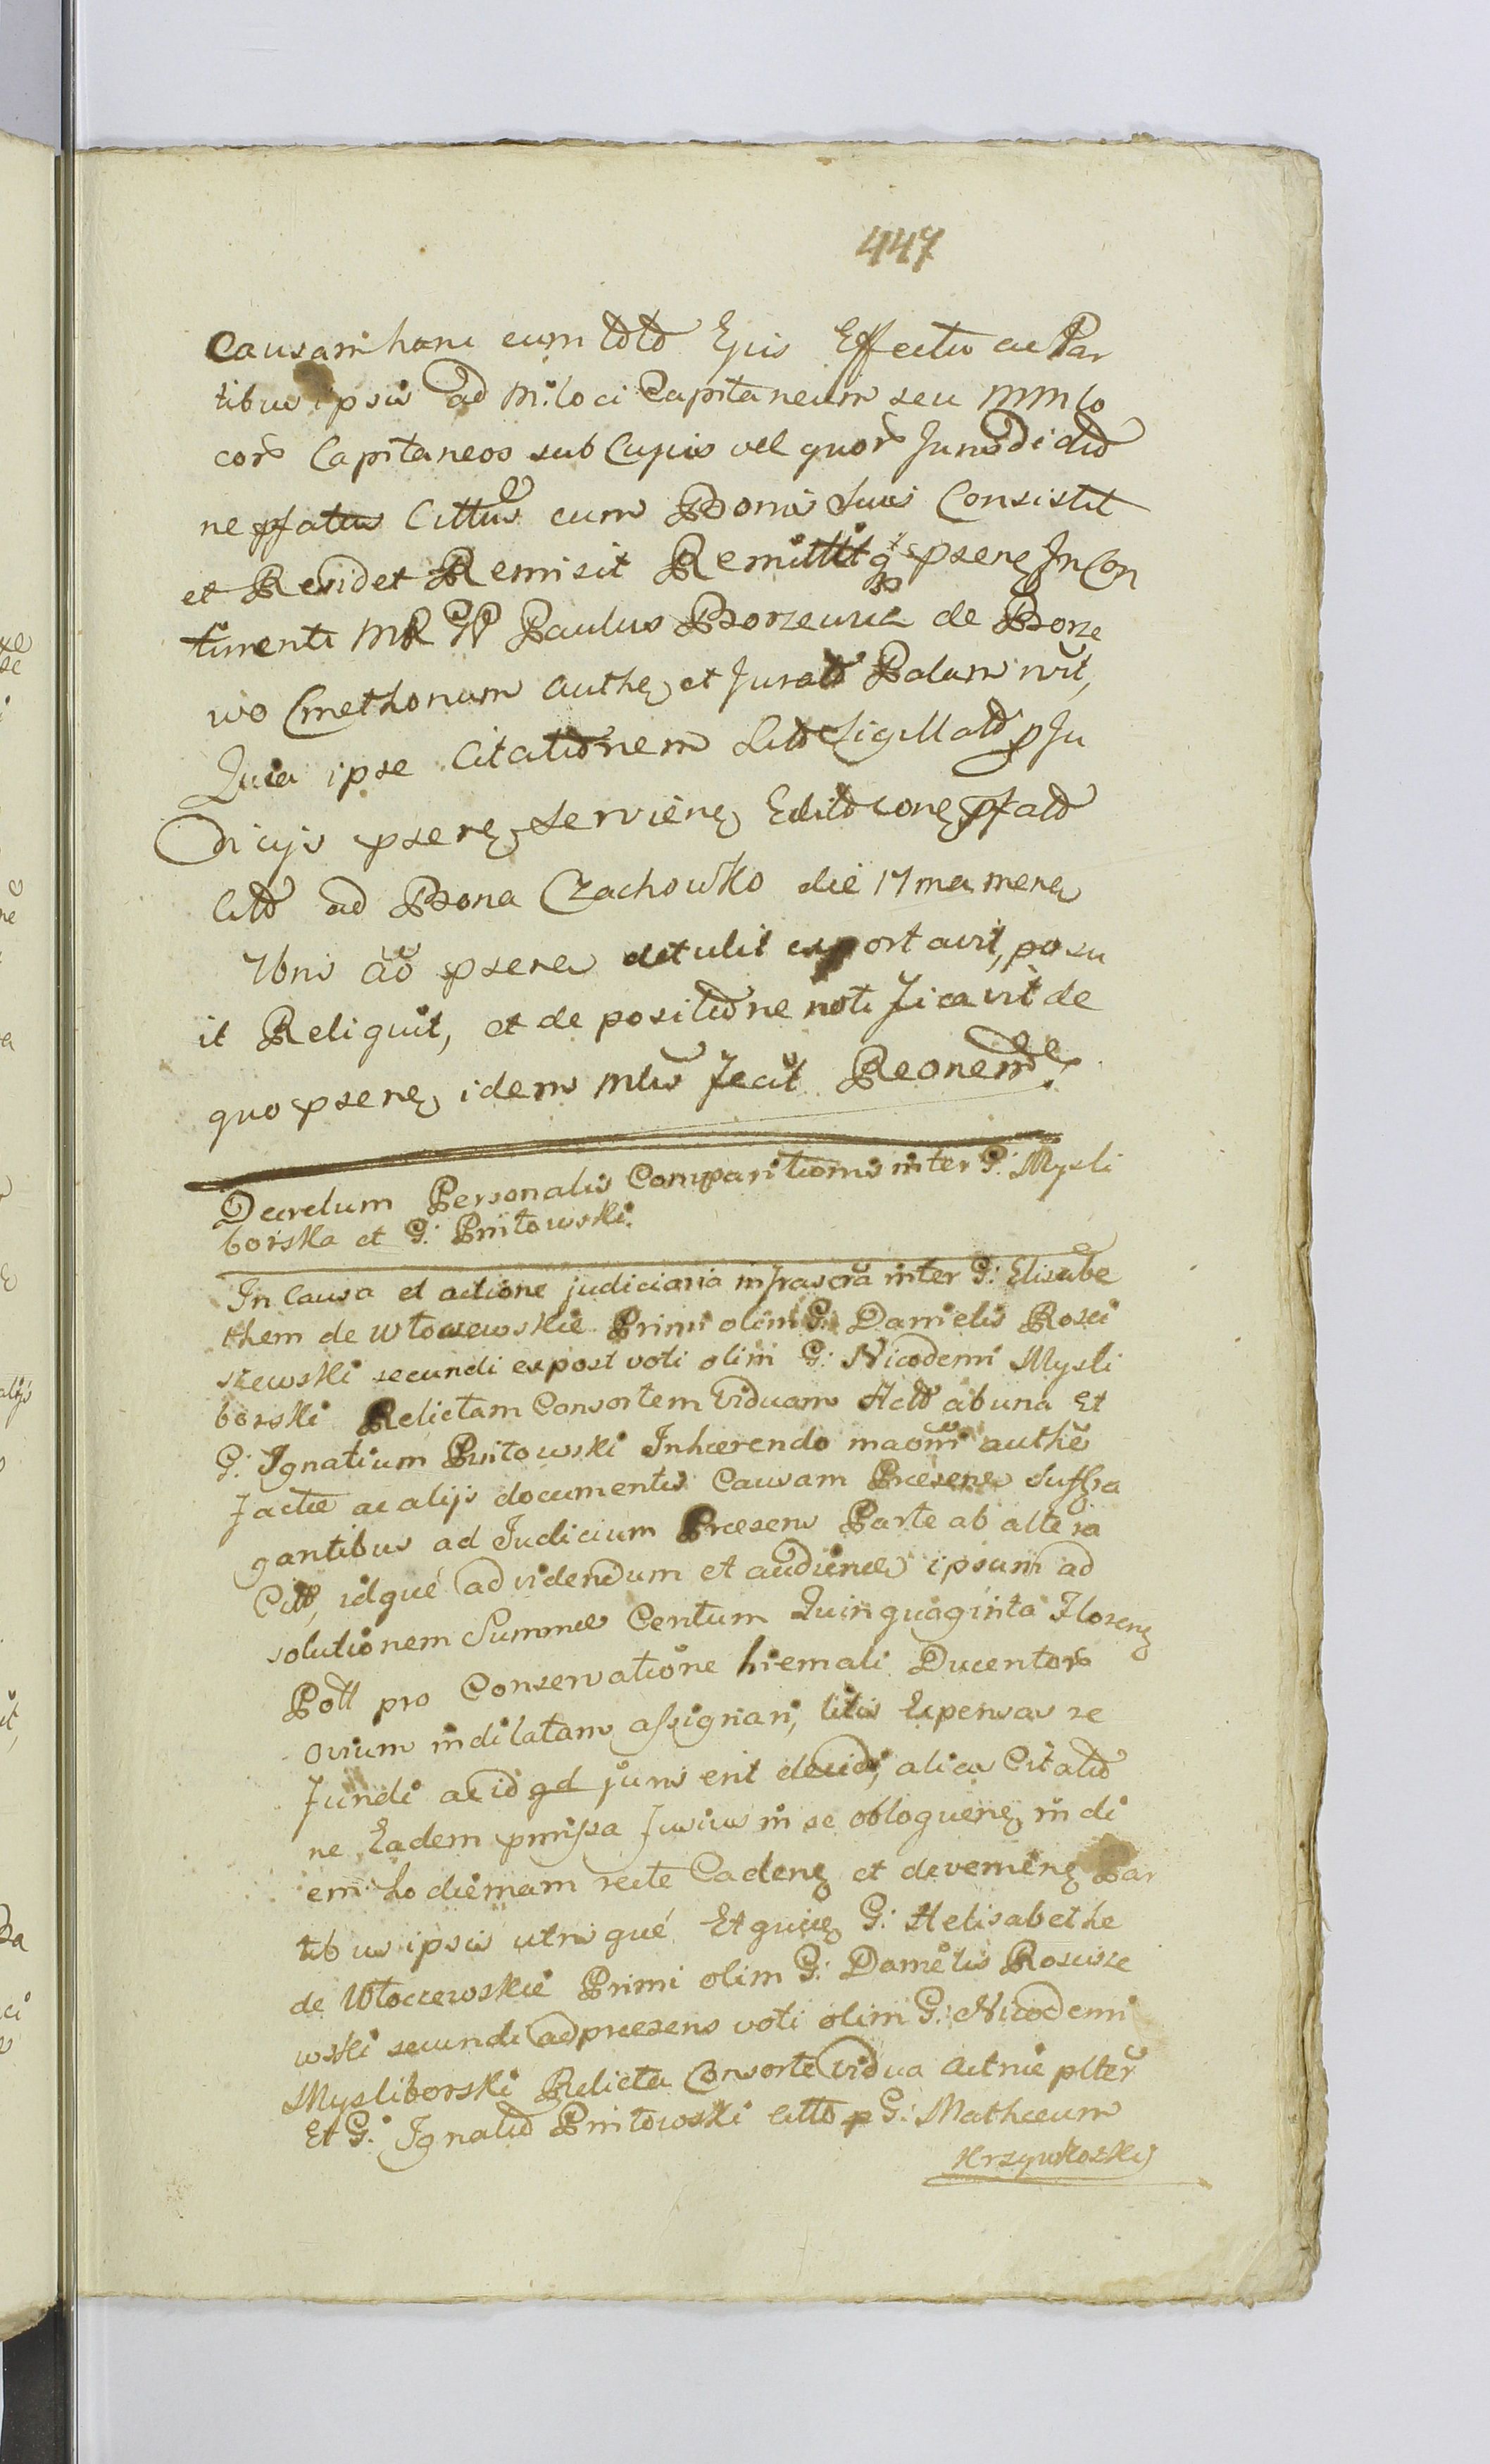 447
Causam hanc cum toto Ejus Effectu ac Par
tibus ipsis ad M: loci Capitaneum seu MM lo
cor Capitaneos sub Cujus vel quor Jurisdictio
ne pfatus Cittus cum Bonis Suis Consistit
et Residet Remisit Remittitq psene In Con
tinenti MR Paulus Borzewic de Borze
wo Cmethonum Authe et Jurat Palam rvit,
Quia ipse Citationem Sigillat p Ju
dicys psene Serviene Edit cone pfat
Citt ad Bona Czachowko die 17ma mene
7bris ao psene detulit exportavit, posu
it Reliquit, et de positione notificavit de
quo psene idem Mlis fecit Reonem.
Decretum Personalis Comparitionis inter G: Mysli
borska et G: Pnitowski.
In Causa et actione judiciaria infrascra inter G: Elisabe
them de Włoczewskie Primi olim G: Danielis Rosci
szewski secundi expost voti olim G: Nicodemi Mysli
borski Relictam Consortem Viduam Act ab una Et
G: Ignatium Pnitowski Inhaerendo maoni authe
factae ac alijs documentis Causam Praesene Suffra
gantibus ad Iudicium Praesens Parte ab altera
Citt, idque ad videndum et audiende ipsum ad
solutionem Summae Centum Quinquaginta Florene
Poll pro Conservatione hiemali Ducentor
ovium in dilatam assignari, litis Expensas re
fundi ac id qd juris erit decidi, alias Citatio
ne Eadem pmissa fusius in se obloquene in di
em hodiernam recte Cadene et deveniene Par
tibus ipsis utrisque Et quidem G: Helisabethe
de Włoczewskie Primi olim G: Danielis Roscisze
wski secundi ad praesens voti olim G: Nicodemi
Mysliborski Relicta Consorte Vidua Actrice plter
Et G: Ignatio Pnitowski Citto p G: Mathaeum
Krzywkoski